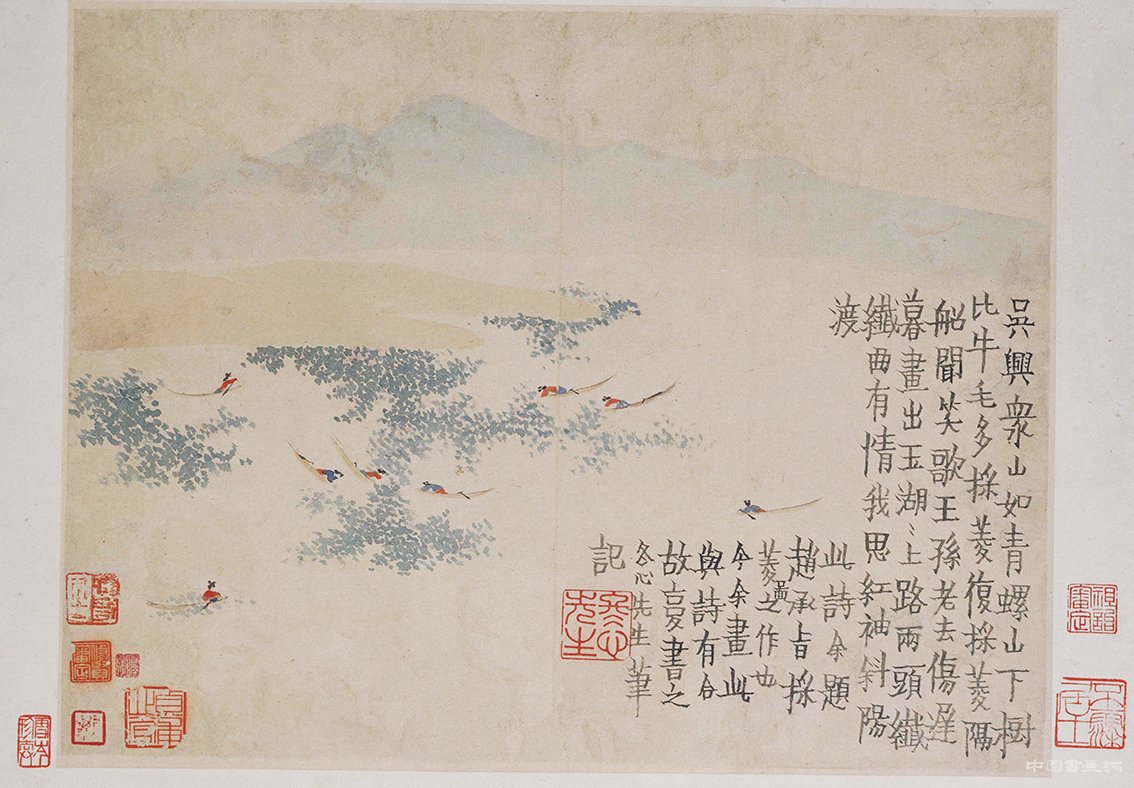 吳興衆山如青螺山下樹
比牛毛多採菱復採菱隔
船聞笑歌王孫老去傷遲
暮畫出玉湖〻上路兩頭纖
纖曲有情我思紅袖斜陽
渡
此詩余題
趙承旨採
菱之作也
今余畫此
與詩有合
故复書之
冬心先生筆
記
冬心先生
中国書画網